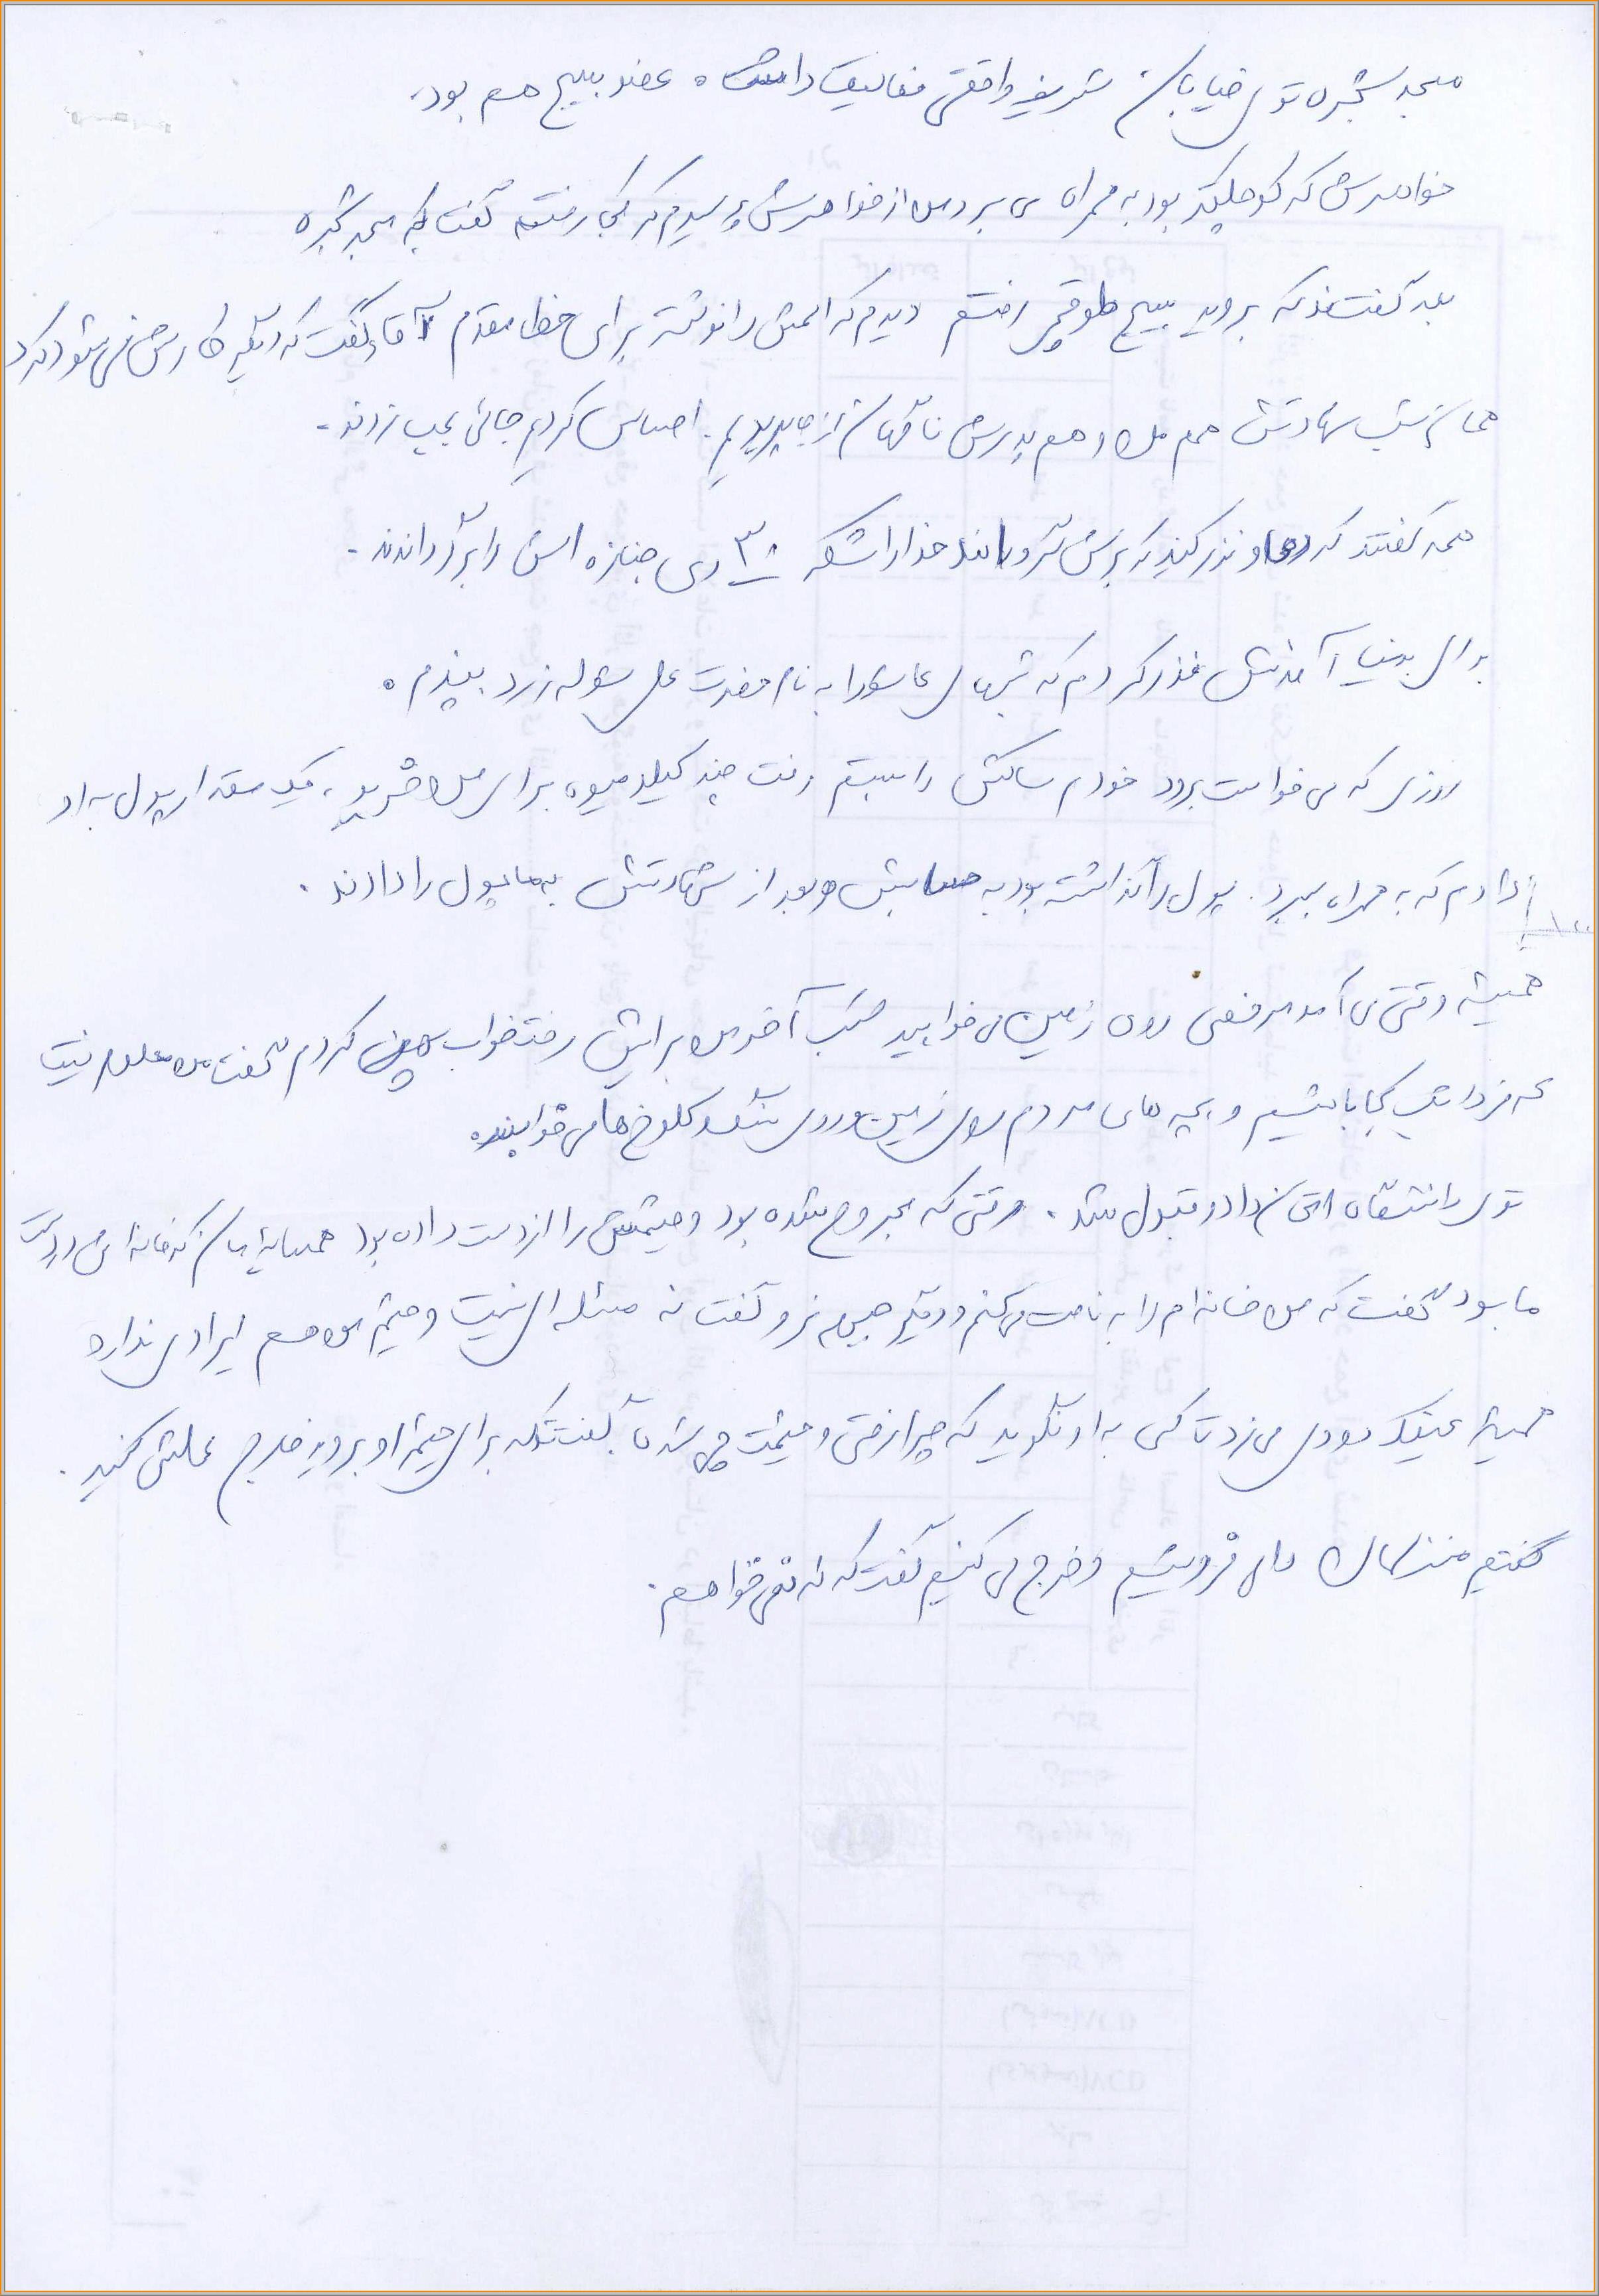 مسجد شجره توی خیابان شریف واقفی فعالیت داشت. عضو بسیج هم بود.
خواهرش که کوچکتر بود به همراه می برد من از خواهرش پرسیدم که کجا رفتید گفت به مسجد شجره
بعد گفتند که بروید بسیج طوقچی رفتم دیدم که اسمش را نوشته برای خط مقدم آقا گفت که دیگه کارش نمی شود کرد
همان شب شهادتش هم من و هم پدرش ناگهان از جا پریدیم. احساس کردیم جائی بمب زدند.
همه گفتند که دعا و نذر کنید که پسرش گروه خدا را شکر ۳۰ دی جنازه اش را برگرداندند.
برای بدنیا آمدنش نذر کردم که شبهای عاشورا به نام حضرت علی شوله زرد بپزم.
روزی که می خواست برود خودم ساکش را بستم رفت چند کیلو میوه برای من خرید، یک مقدار پول به او
دادم که به همراه ببرد. پول را گذاشته بود به حسابش و بعد از شهادتش به ما پول را دادند.
همیشه وقتی می آمد مرخصی روی زمین می خوابید شب آخر من برایش رختخواب پهن کردم گفت من معلوم نیست
که فردا شب کجا باشیم و بچه های مردم روی زمین و روی سنگ و کلوخ ها می خوابند.
توی دانشگاه امتحان داد و قبول شد. وقتی که مجروح شده بود و چشمش را از دست داده بود همسایه امان که خانه اش روبروی
ما بود گفت که من خانه ام را به نامت می کنم و دیگر جبهه نرو گفت نه مسئله ای نیست و چشم من هم ایرادی ندارد
همیشه عینک دودی می زد تا کسی به او نگوید که چرا رفتی و چشمت چی شد ما گفتند که برای چشم او بروید خارج عملش کنید.
گفتیم منزلمان را می فروشیم و خرج می کنیم گفت که نه نمی خواهم.